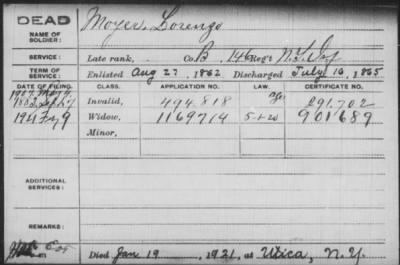 DEAD
NAME OF SOLDIER:
Moyer, Lorenzo
SERVICE:
Late rank, Co. B, 146 Reg't N.Y. Inf
TERM OF SERVICE:
Enlisted Aug 27, 1862 Discharged July 16, 1865
DATE OF FILING. CLASS. APPLICATION NO. LAW. CERTIFICATE NO.
Invalid, 494.818 291.702
Widow, 1169714 5-1-20 901689
Minor,
1921
ADDITIONAL SERVICES:
REMARKS:
Died Jan 19, 1921, at Utica, N.Y.